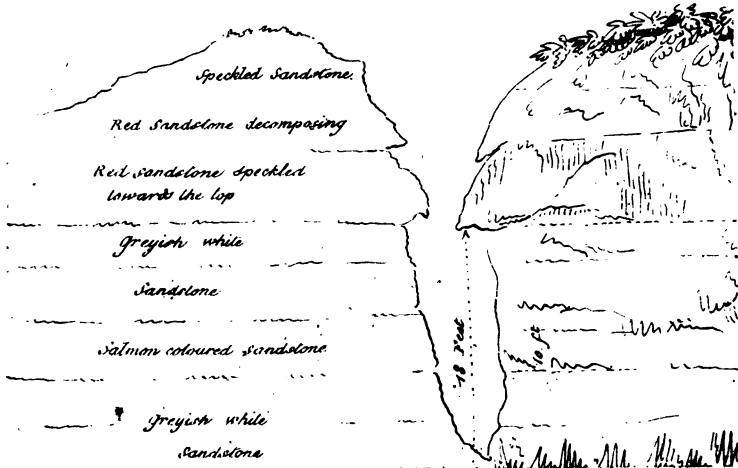 Speckled Sandstone.
Red Sandstone decomposing
Red Sandstone speckled
towards the top
Greyish white
Sandstone
Salmon coloured Sandstone
greyish white
Sandstone
18 Feet
10 ft